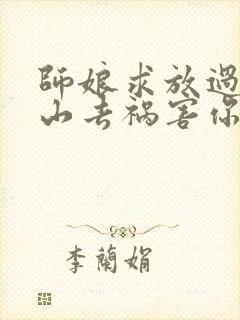 師娘求放過
山去禍害你
李蘭娟